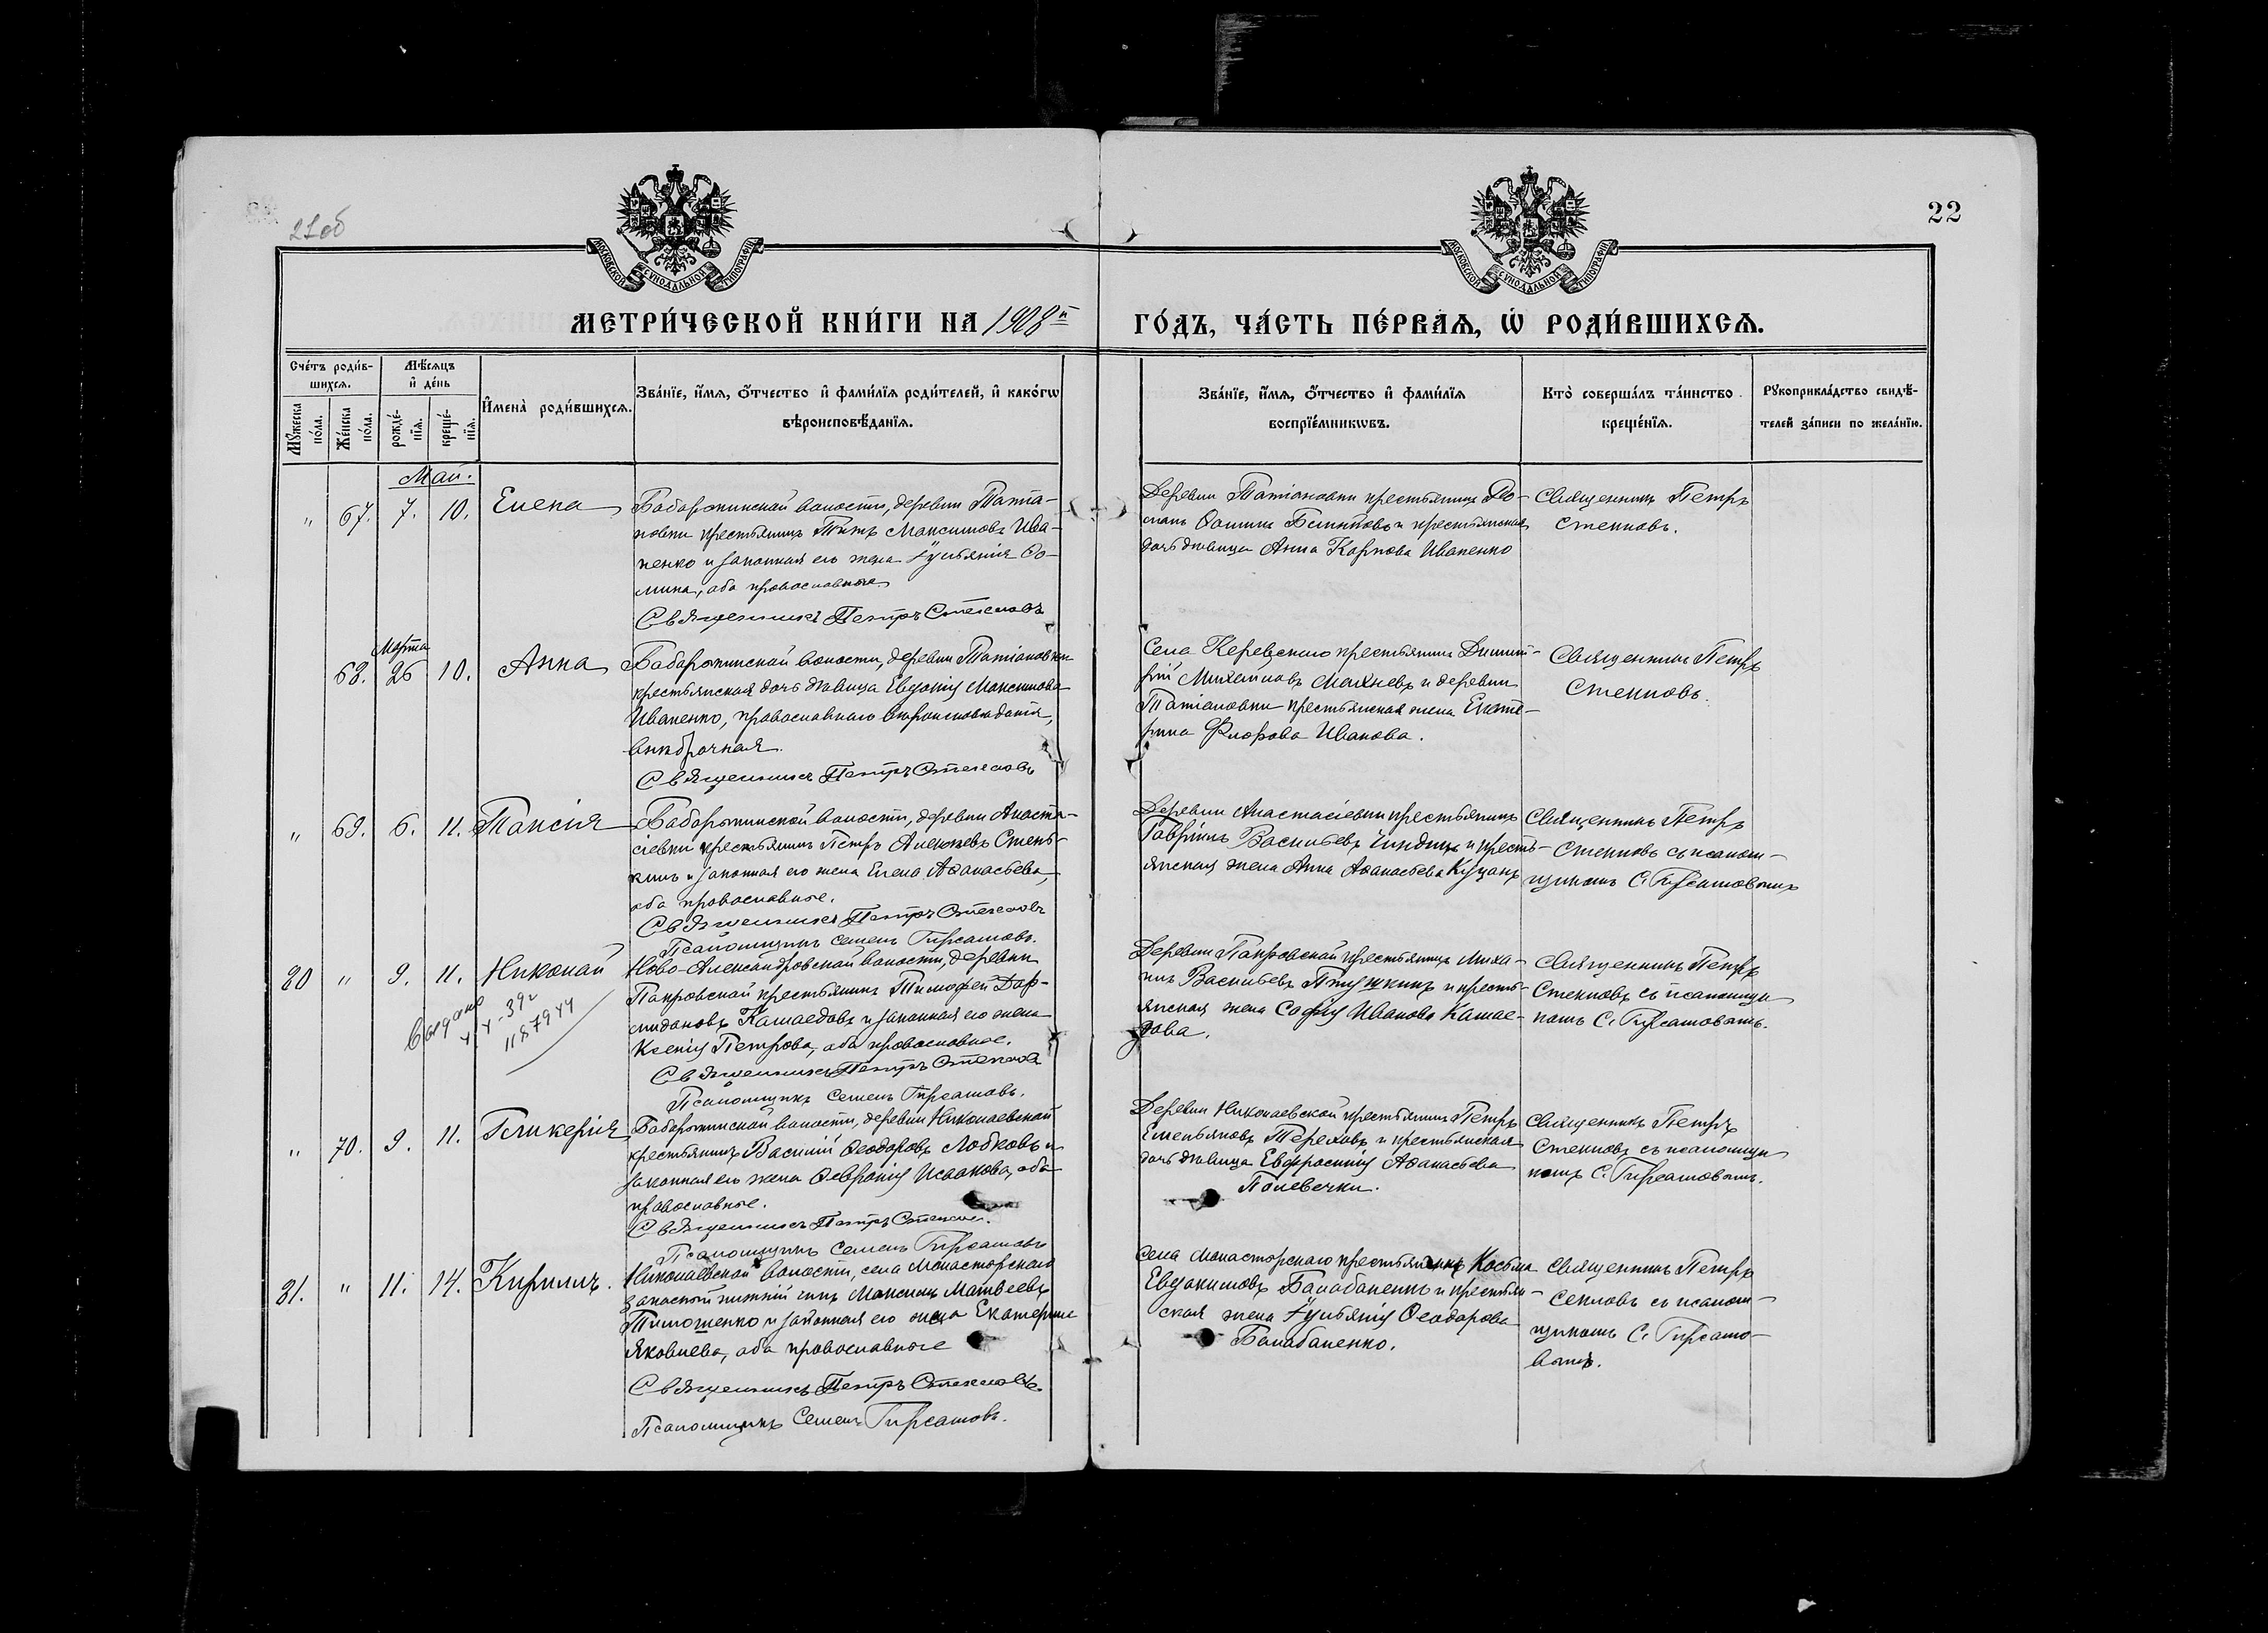 21об
22
МОСКОВСКОЙ СѴНОДАЛЬНОЙ ТИПОГРАФІИ
МОСКОВСКОЙ СѴНОДАЛЬНОЙ ТИПОГРАФІИ
МЕТРИ́ЧЕСКОЙ КНИ́ГИ НА 1908й ГО́ДЪ, ЧА́СТЬ ПЕ́РВАѦ, Ѡ҆ РОДИ́ВШИХСѦ.
Сче́тъ роди́в-
шихсѧ.
Мѣ́сѧцъ
и҆ де́нь
Мꙋ́жеска
по́ла.
Же́нска
по́ла.
рожде́-
нїѧ.
креще́-
нїѧ.
И҆мена̀ роди́вшихсѧ.
Зва́нїе, и҆́мѧ, ѻ҆́тчество и҆ фами́лїѧ роди́телей, и҆ како́гѡ
вѣроисповѣ́данїѧ.
Зва́нїе, и҆́мѧ, ѻ҆́тчество и҆ фами́лїѧ
воспрїе́мникѡвъ.
Кто̀ соверша́лъ та́инство
креще́нїѧ.
Рꙋкоприкла́дство свидѣ́-
телей за́писи по жела́нїю.
Май.
" 67. 7. 10. Елена
Бабарыкинской волости, деревни Татіа-
новки крестьянинъ Титъ Максимовъ Ива-
ненко и законная его жена Іуліанія Ѳо-
мина, оба православные
Священникъ Петръ Стекловъ
Деревни Татіановки крестьянинъ Ро-
манъ Ѳоминъ и крестьянская
дочь дѣвица Анна Карпова Иваненко
Священникъ Петръ
Стекловъ.
68. Марта 26 10. Анна
Бабарыкинской волости, деревни Татіановки
крестьянская дочь дѣвица Евдокія Максимова
Иваненко, православнаго вѣроисповѣданія,
внѣбрачная.
Священникъ Петръ Стекловъ
Села крестьянинъ Димит-
рій Михайловъ Махневъ и деревни
Татіановки крестьянская жена Екате-
рина Флорова Иванова.
Священникъ Петръ
Стекловъ.
" 69. 6. 11. Таисія
Бабарыкинской волости, деревни Анаста-
сіевки крестьянинъ Петръ Алексѣевъ
и законная его жена Елена Аѳанасьева,
оба православные.
Священникъ Петръ Стекловъ
Псаломщикъ Семенъ Тирсатовъ.
Деревни Анастасіевки крестьянинъ
Гавріилъ Васильевъ и кресть-
янская жена Анна Аѳанасьева
Священникъ Петръ
Стекловъ съ псалом-
щикомъ С. Тирсатовымъ
80 " 9. 11. Николай
Выдано
11587944
Ново-Александровской волости, деревни
Покровской крестьянинъ Тимофей
Камаедовъ и законная его жена
Ксенія Петрова, оба православные.
Священникъ Петръ Стекловъ
Псаломщикъ Семенъ Тирсатовъ.
Деревни Покровской крестьянинъ Миха-
илъ Васильевъ Птушкинъ и кресть-
янская жена Софія Иванова Камае-
дова.
Священникъ Петръ
Стекловъ съ псаломщи-
комъ С. Тирсатовымъ.
" 70. 9. 11. Гликерія
Бабарыкинской волости, деревни Николаевской
крестьянинъ Василій Ѳеодоровъ Лобковъ и
законная его жена Ѳевронія Исаакова, оба
православные.
Священникъ Петръ Стекловъ.
Псаломщикъ Семенъ Тирсатовъ
Деревни Николаевской крестьянинъ Петръ
Емельяновъ Тереховъ и крестьянская
дочь дѣвица Евфросинія Аѳанасьева
Священникъ Петръ
Стекловъ съ псаломщи-
комъ С. Тирсатовымъ.
81. " 11. 14. Кириллъ.
Николаевской волости, села Монастырскаго
запасный нижній чинъ Максимъ Матвеевъ
Тимошенко и законная его жена Екатерина
Яковлева, оба православные
Священникъ Петръ Стекловъ.
Псаломщикъ Семенъ Тирсатовъ.
Села Монастырскаго крестьянинъ Косьма
Евдокимовъ Балабаненко и крестьян-
ская жена Іуліанія Ѳеодорова
Балабаненко.
Священникъ Петръ
Секловъ съ псалом-
щикомъ С. Тирсато-
вымъ.